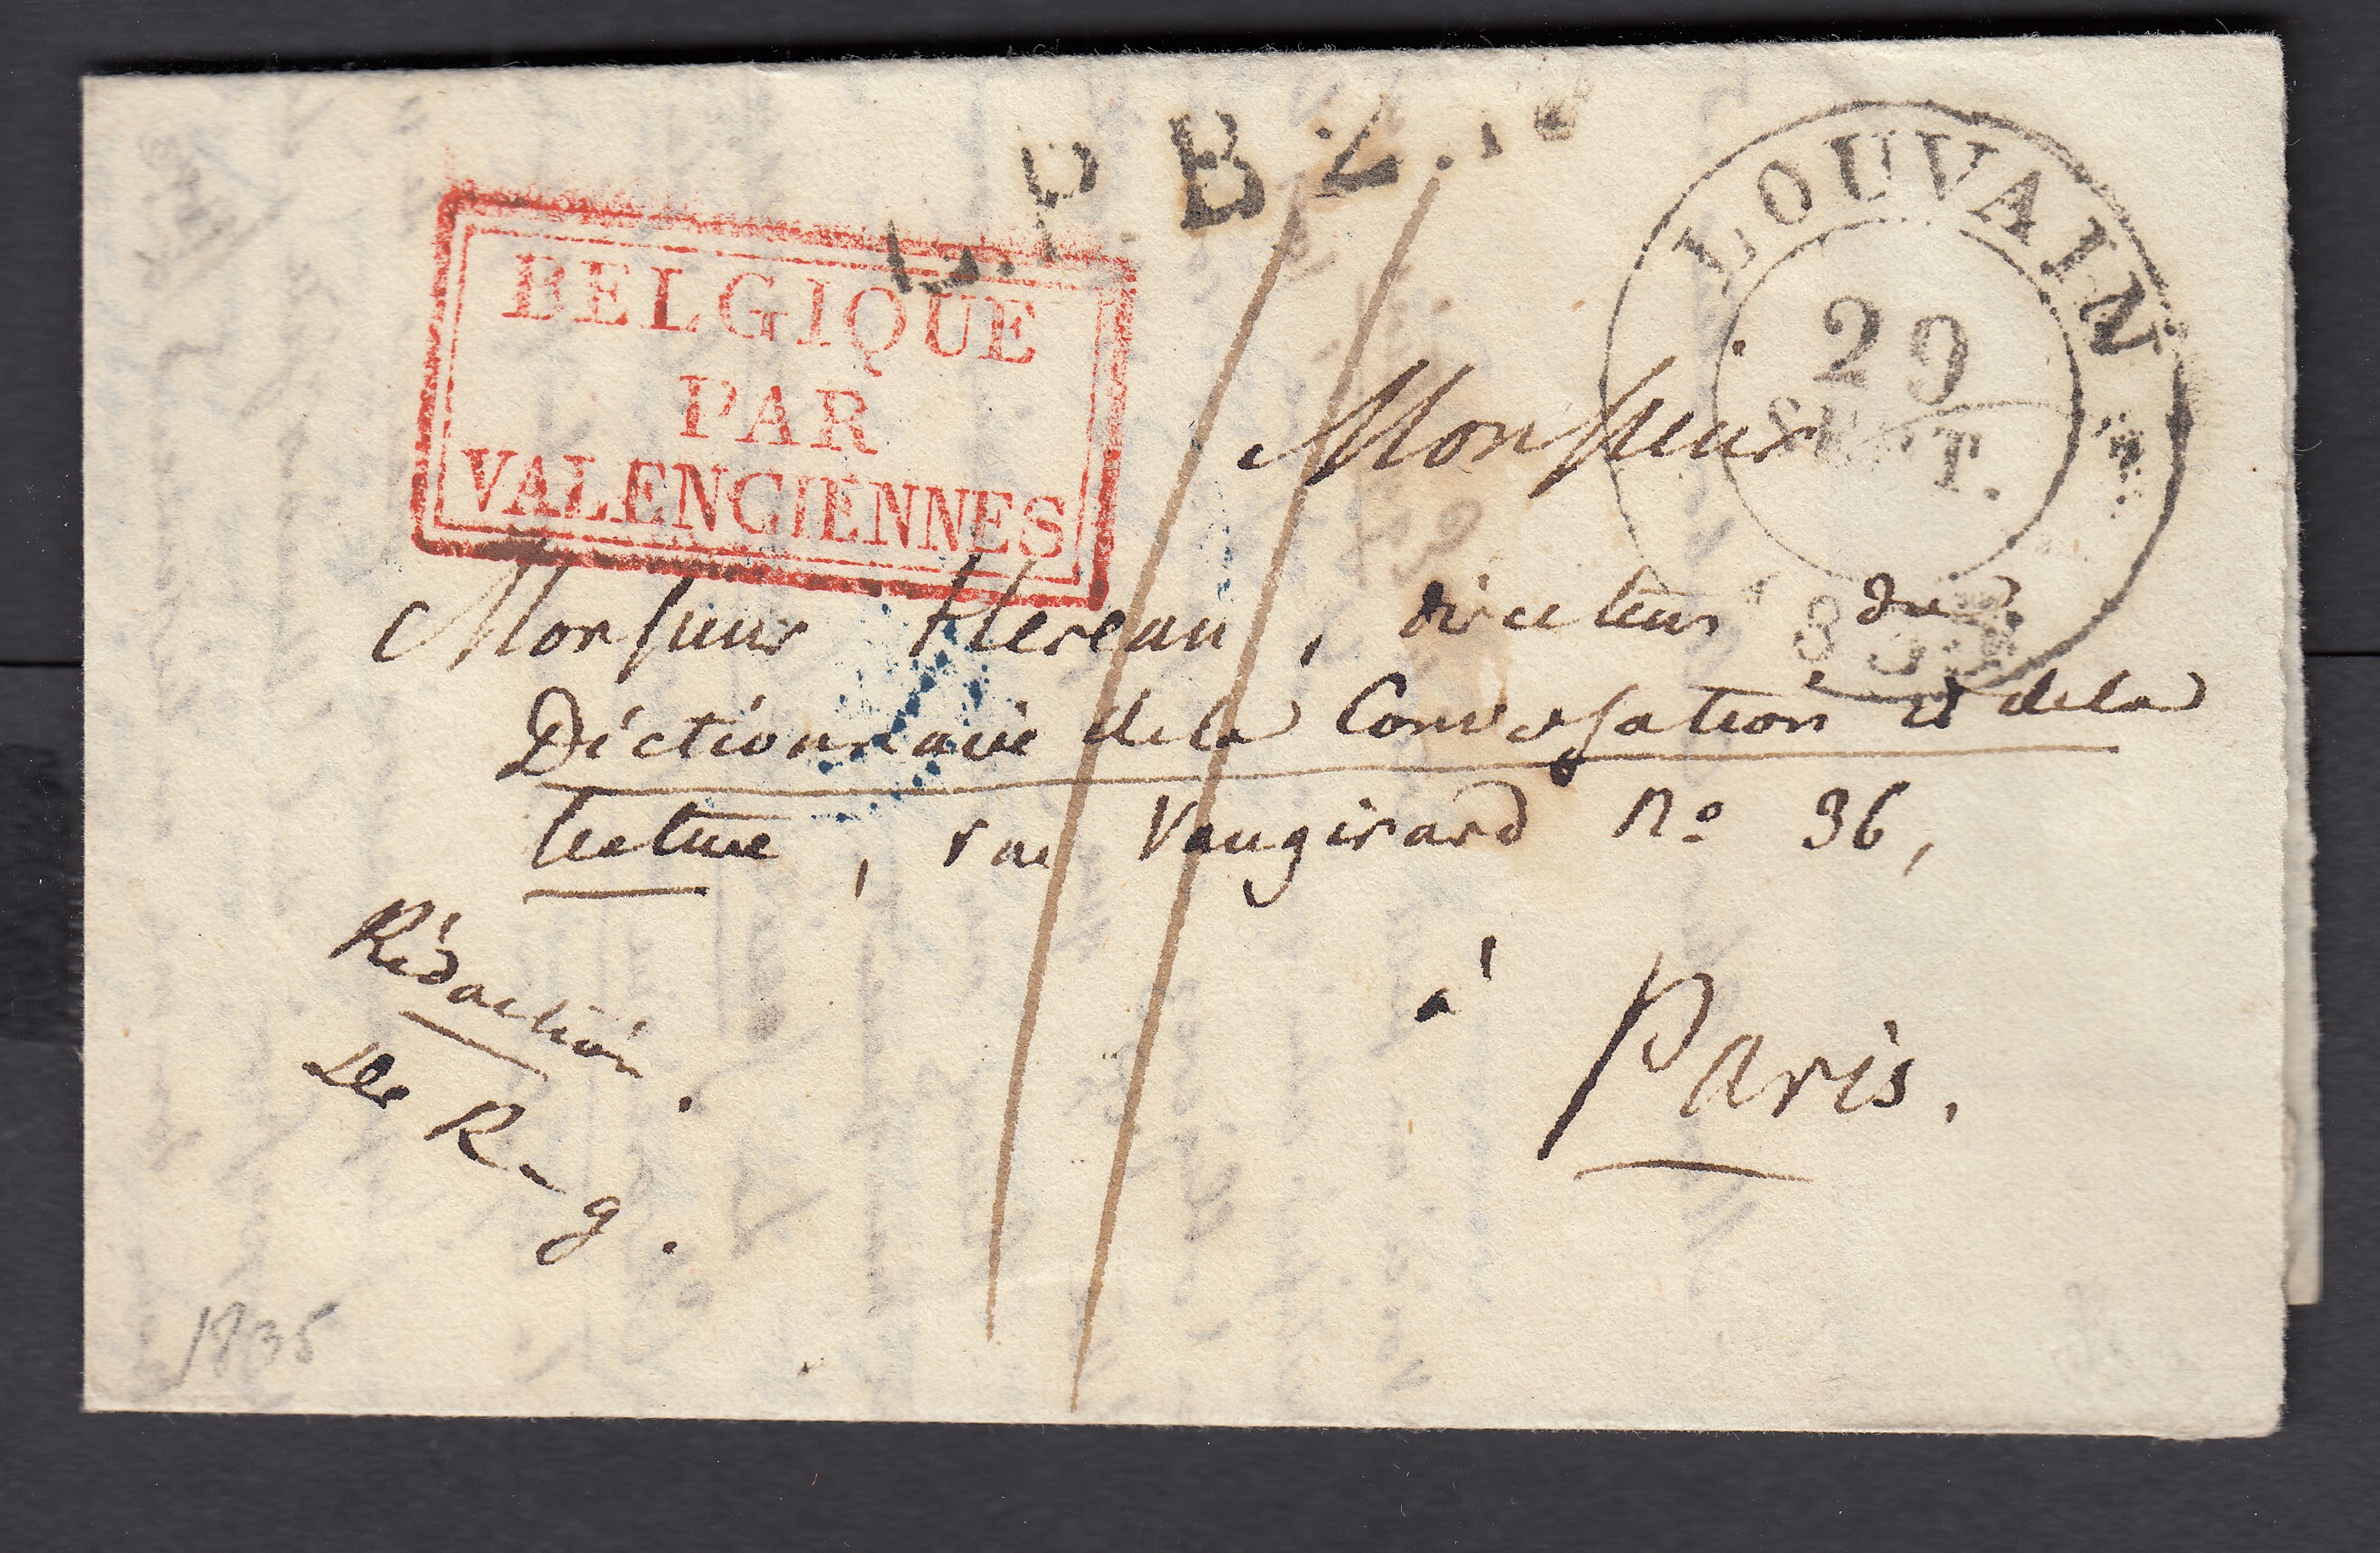 L.P.B.2.R
LOUVAIN
29
SEPT.
BELGIQUE
PAR
VALENCIENNES
Monsieur
Monsieur Hereau, directeur du
Dictionnaire de la Conversation et de la
lecture, rue Vaugirard No 36,
à
Paris.
Rédaction.
De R-g.
1835